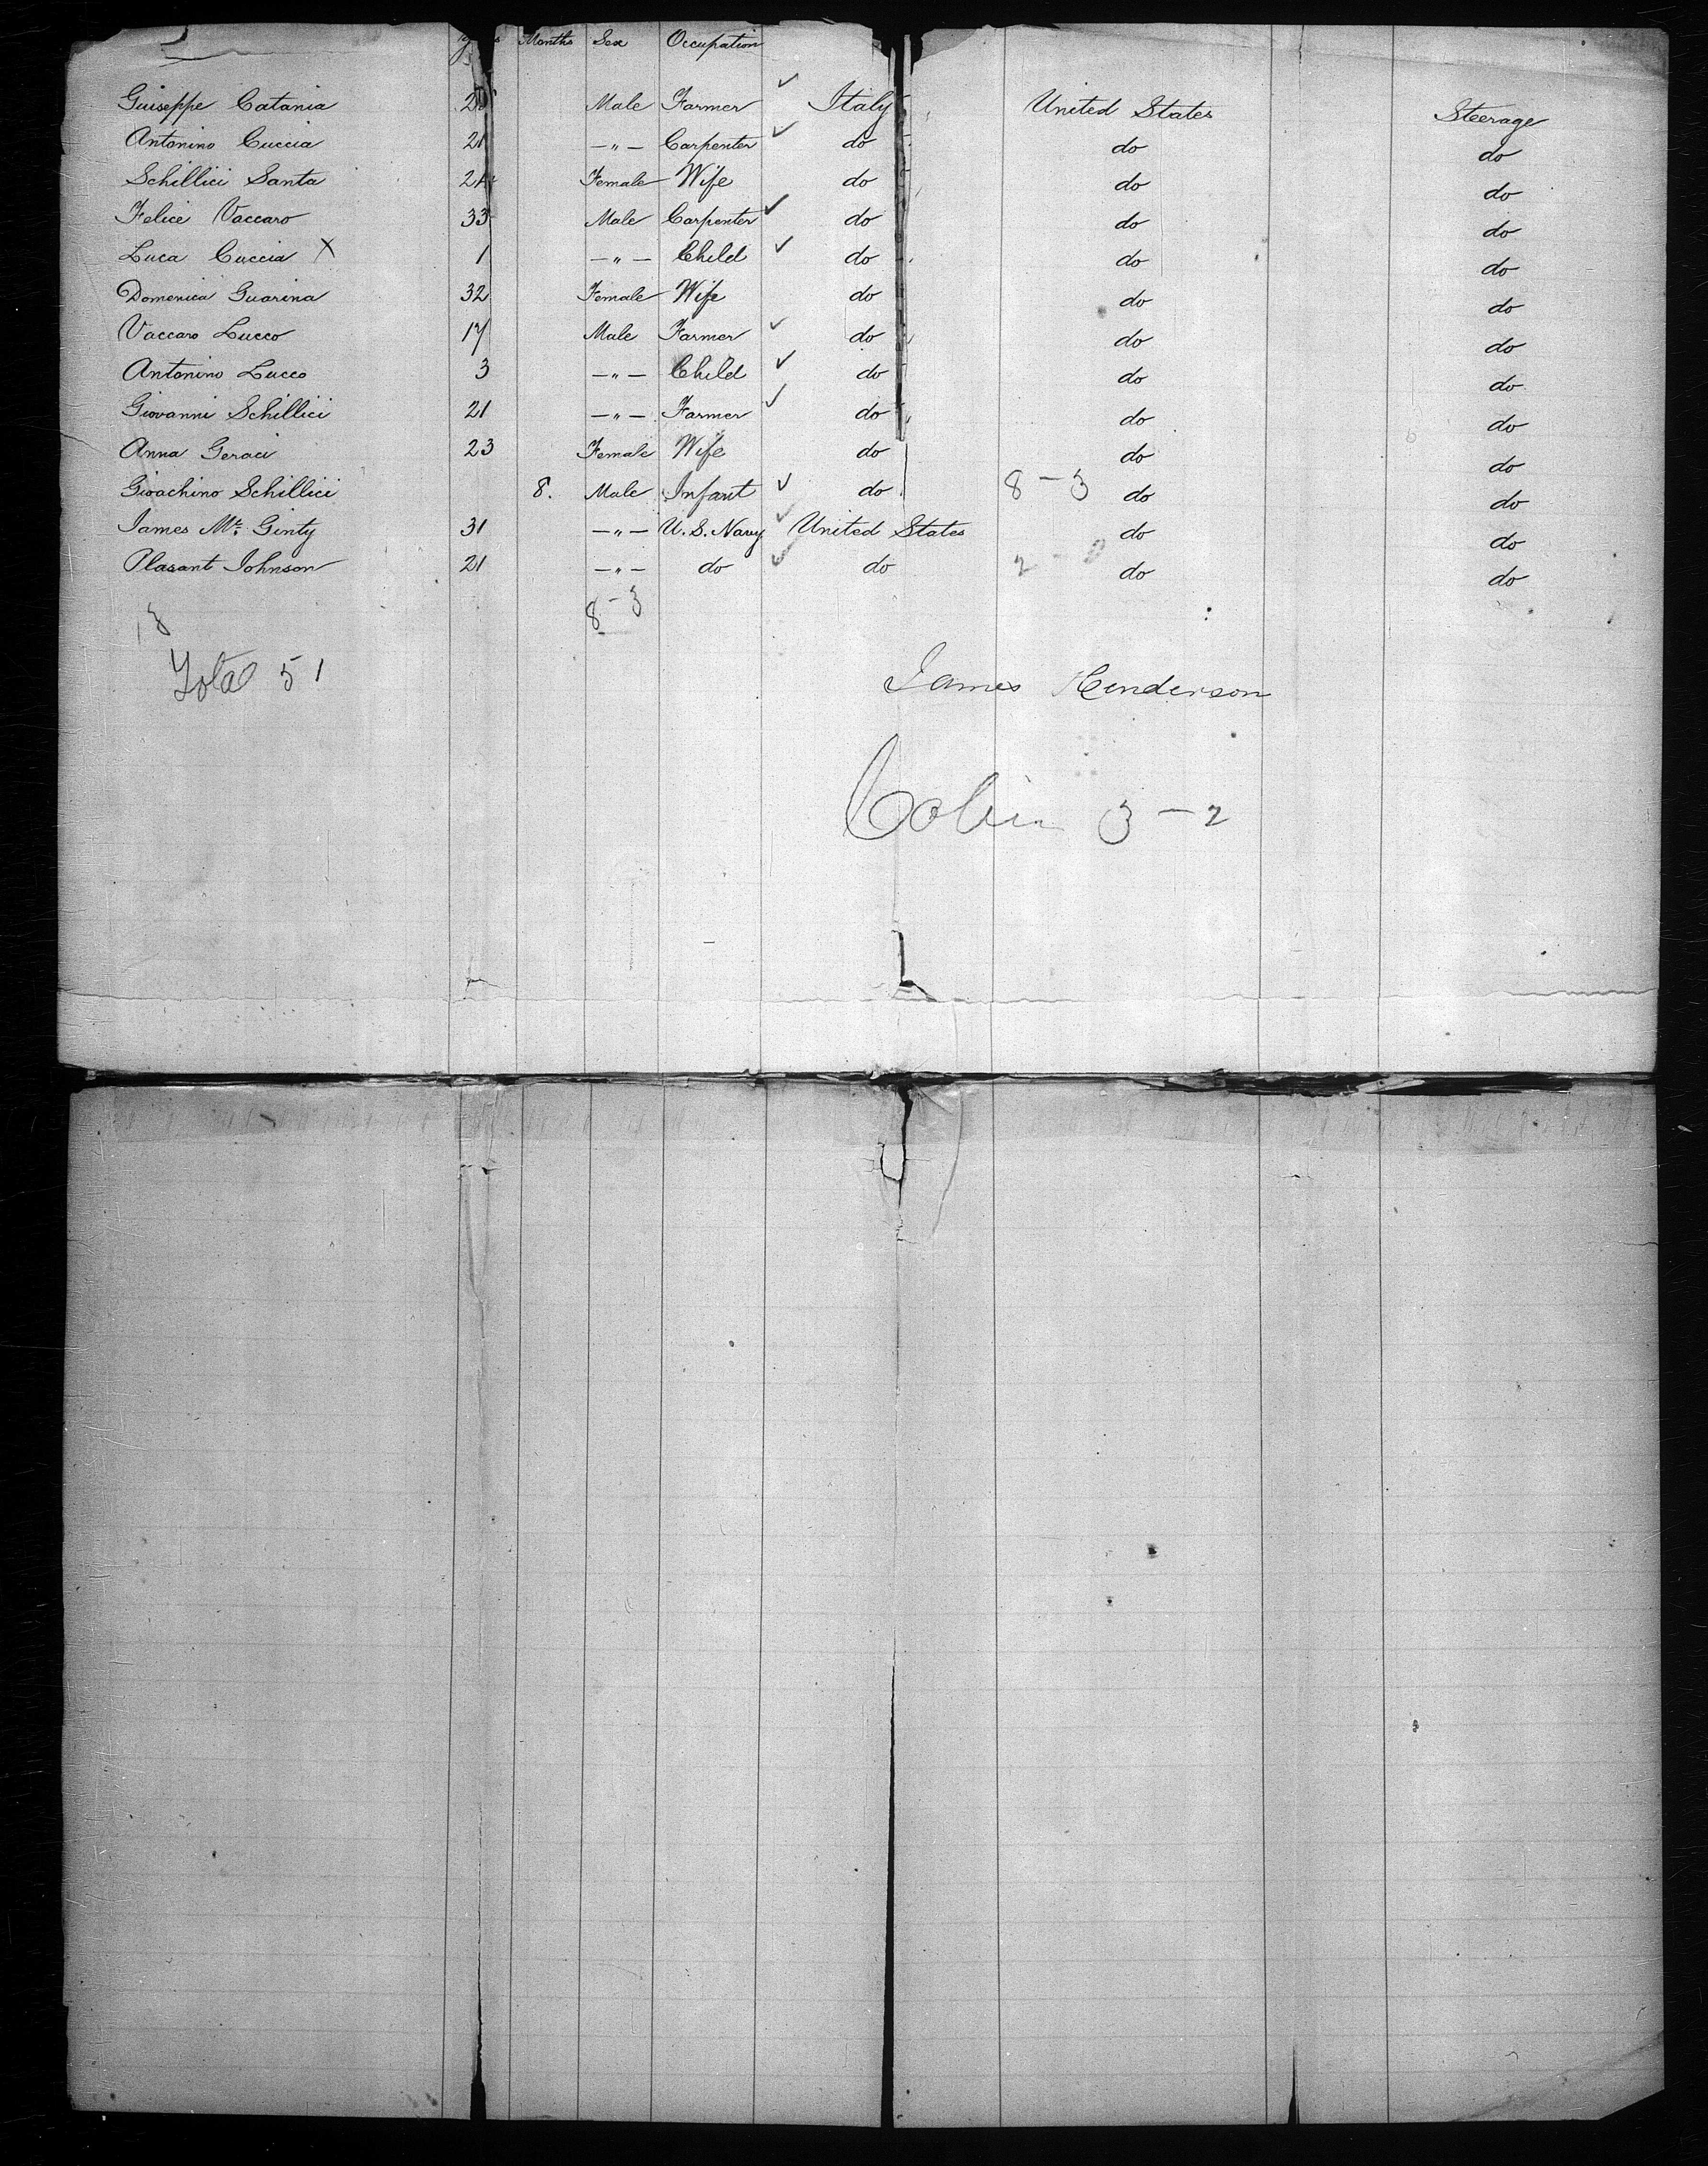 Months Sex Occupation
Guiseppe Catania Male Farmer ✓ Italy United States Steerage
Antonino Cuccia 21 —"— Carpenter ✓ do do do
Schillici Santa Female Wife do do do
Felice Vaccaro 33 Male Carpenter ✓ do do do
Luca Cuccia X 1 —"— Child ✓ do do do
Domenica Guarina 32 Female Wife do do do
Vaccaro Lucco 17 Male Farmer ✓ do do do
Antonino Lucco 3 —"— Child ✓ do do do
Giovanni Schillici 21 —"— Farmer ✓ do do do
Anna Geraci 23 Female Wife do do do
Gioachino Schillici 8. Male Infant ✓ do 8-3 do do
James Mc Ginty 31 —"— U.S. Navy ✓ United States do do
Plasant Johnson 21 —"— do ✓ do do do
8-3
Total 51
James Henderson
Cabin 3-2